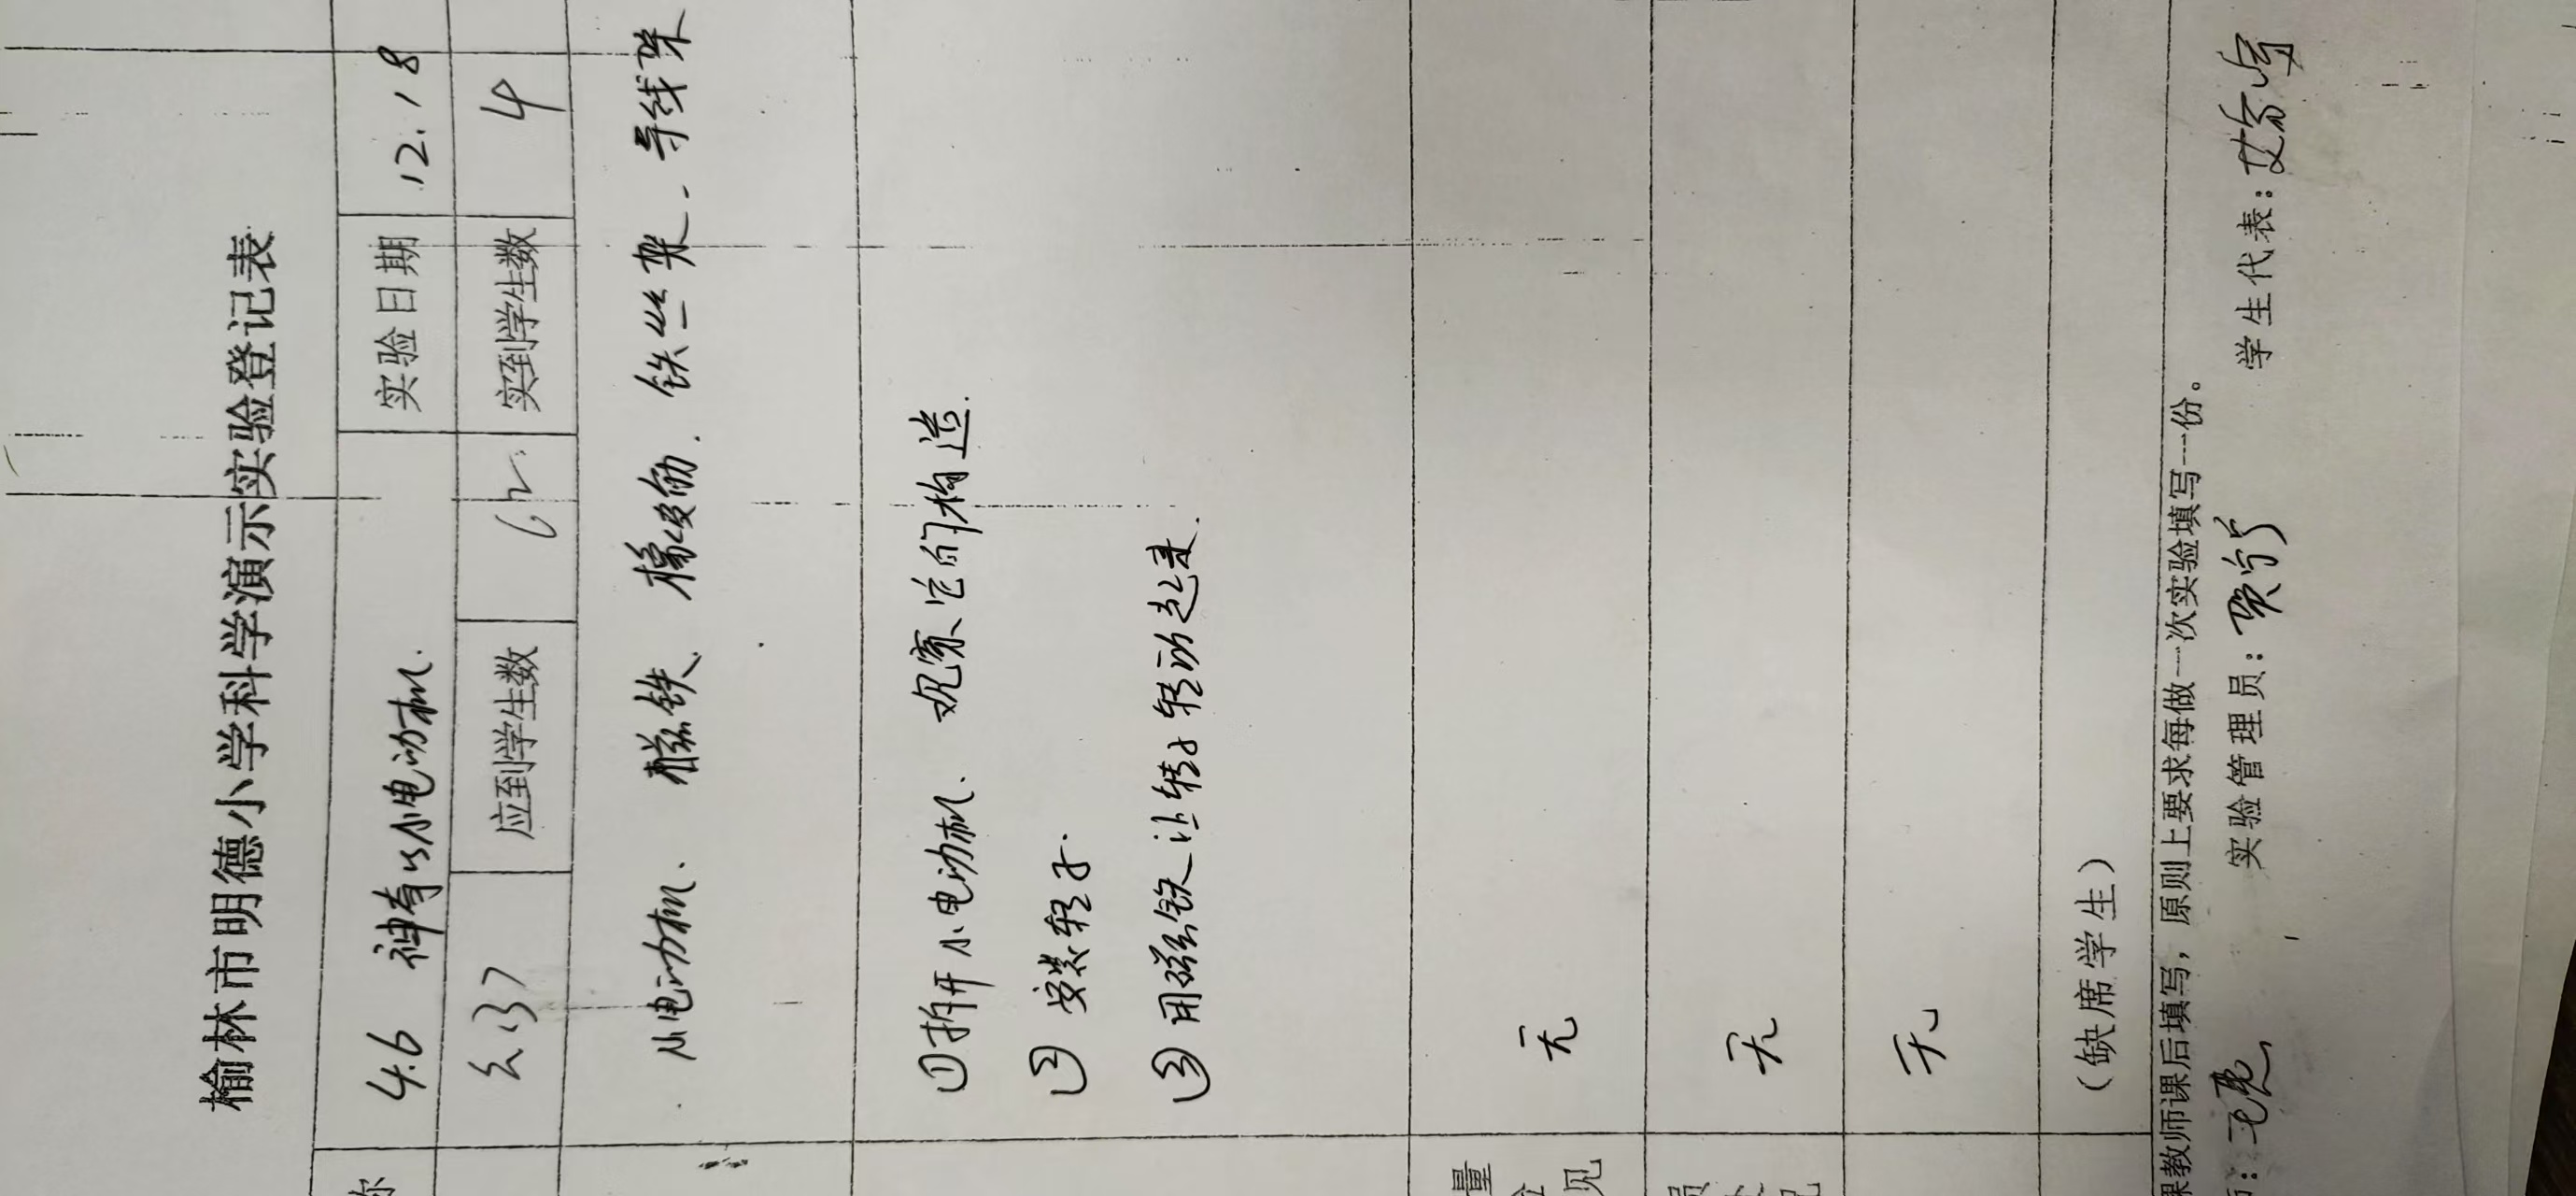 榆林市明德小学科学演示实验登记表
称 4.6 神奇的小电动机. 实验日期 12.18
应到学生数 实到学生数
小电动机、磁铁、橡皮筋.铁丝架、导线架
①拆开小电动机、观察它的构造.
② 安装转子.
③ 用磁铁让转子转动起来.
量
见 无
员 无
无
(缺席学生)
课教师课后填写,原则上要求每做一次实验填写一份。
实验管理员: 学生代表: